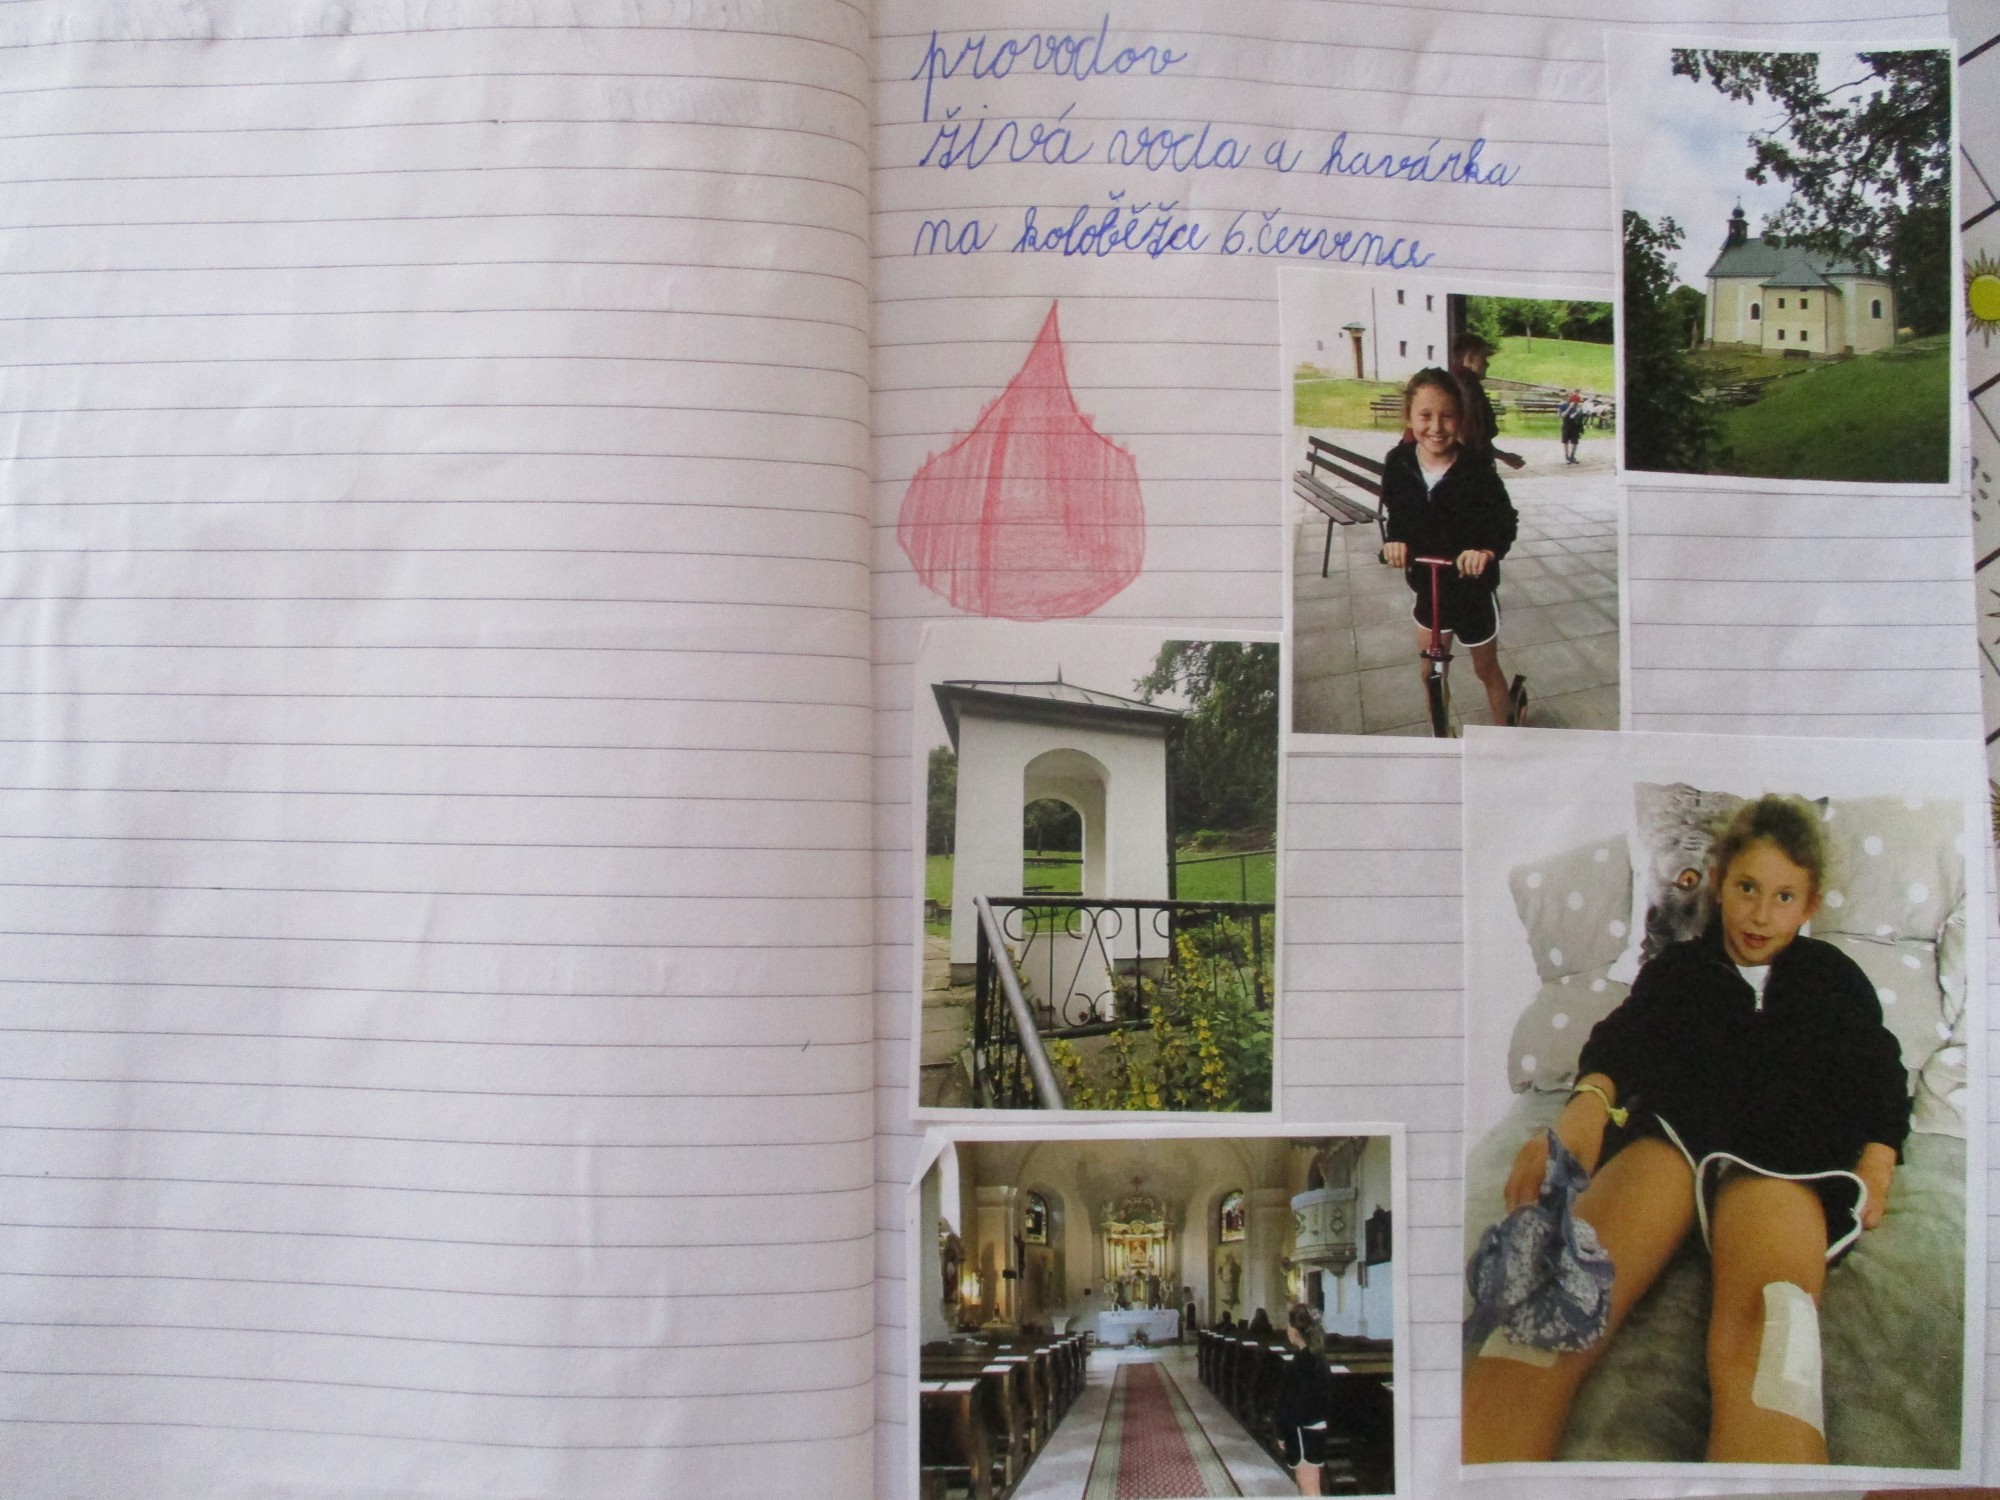 provodov
živá voda a havárka
na koloběžce 6. července